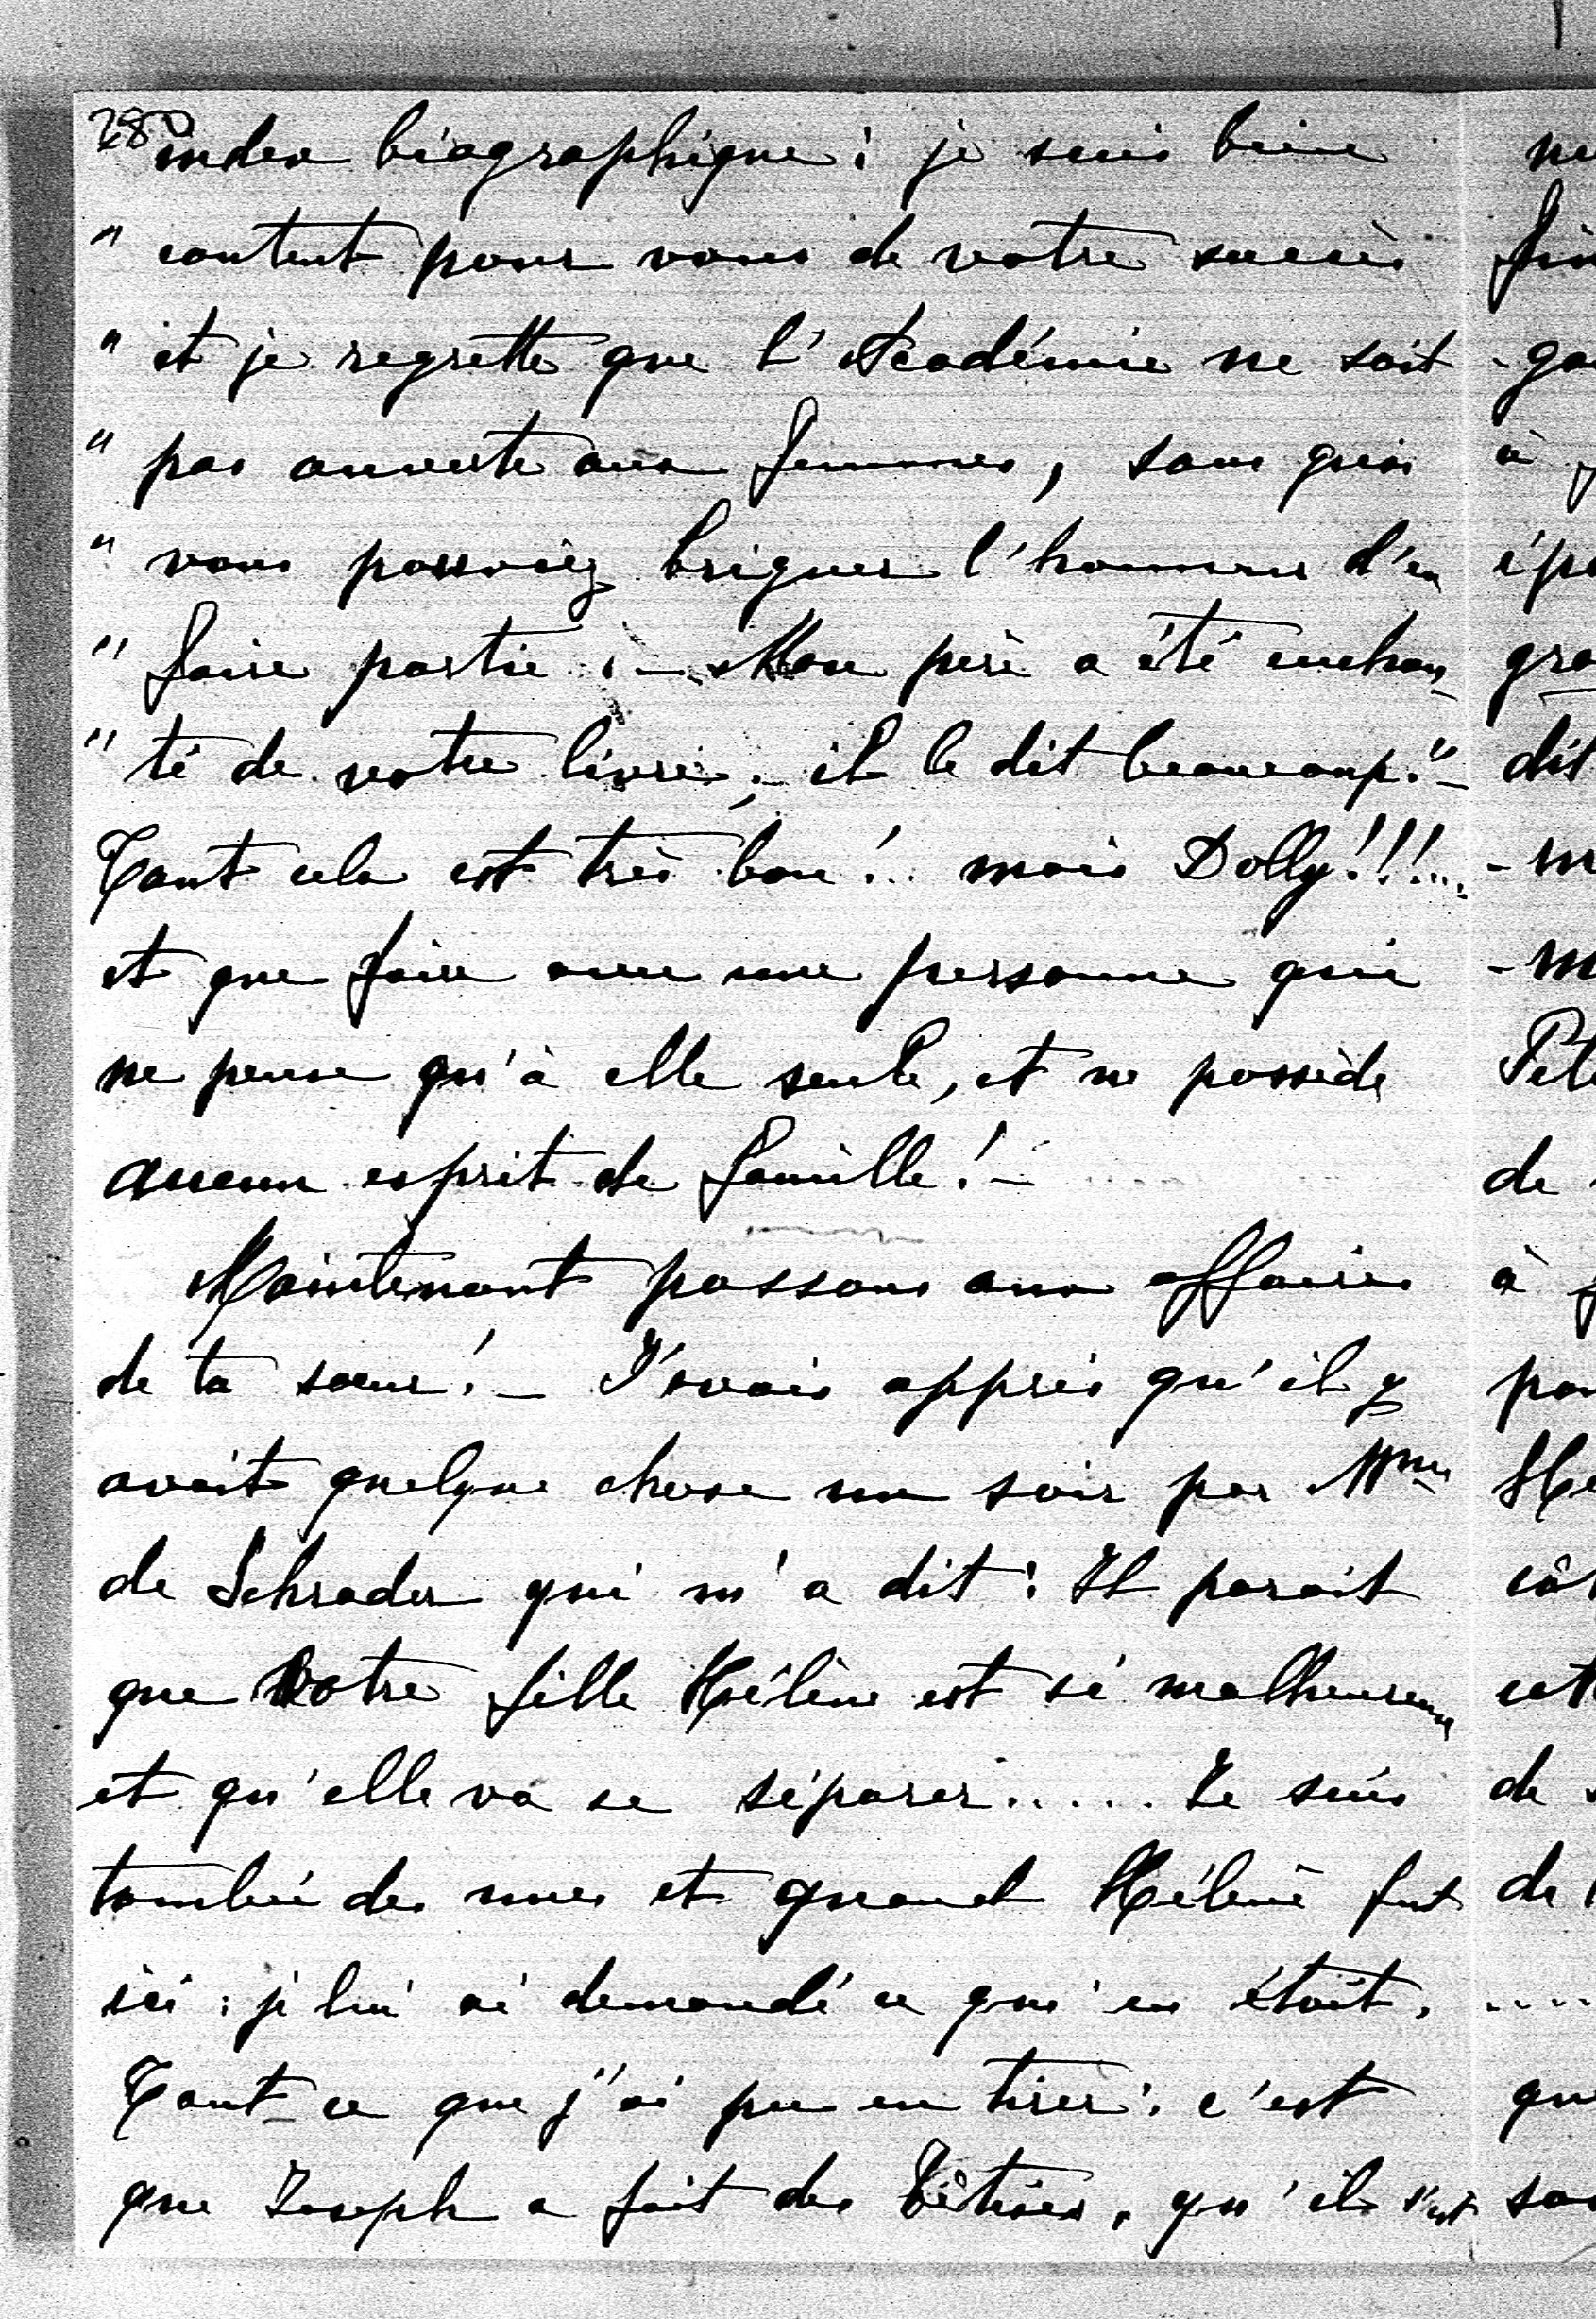 280
index biographique ; je suis bien
" content pour vous de votre succès
" et je regrette que l'Académie ne soit
" pas ouverte aux femmes, sans quoi
" vous pourriez briguer l'honneur d'en
" faire partie . — Mon père a été enchan-
" té de votre livre ; il le dit beaucoup." —
Tout cela est très bon !.. mais Dolly !!!....
et que faire avec une personne qui
ne pense qu'à elle seule, et ne possède
aucun esprit de famille ! —
Maintenant passons aux affaires
de ta sœur ! — J'avais appris qu'il y
avait quelque chose un soir par Mme
de Schrader qui m'a dit : Il parait
que votre fille Hélène est si malheureuse
et qu'elle va se séparer..... Je suis
tombée des nues et quand Hélène fut
ici : je lui ai demandé ce qui en était.
Tout ce que j'ai pu en tirer : c'est
que Joseph a fait des bêtises, qu'il s'est